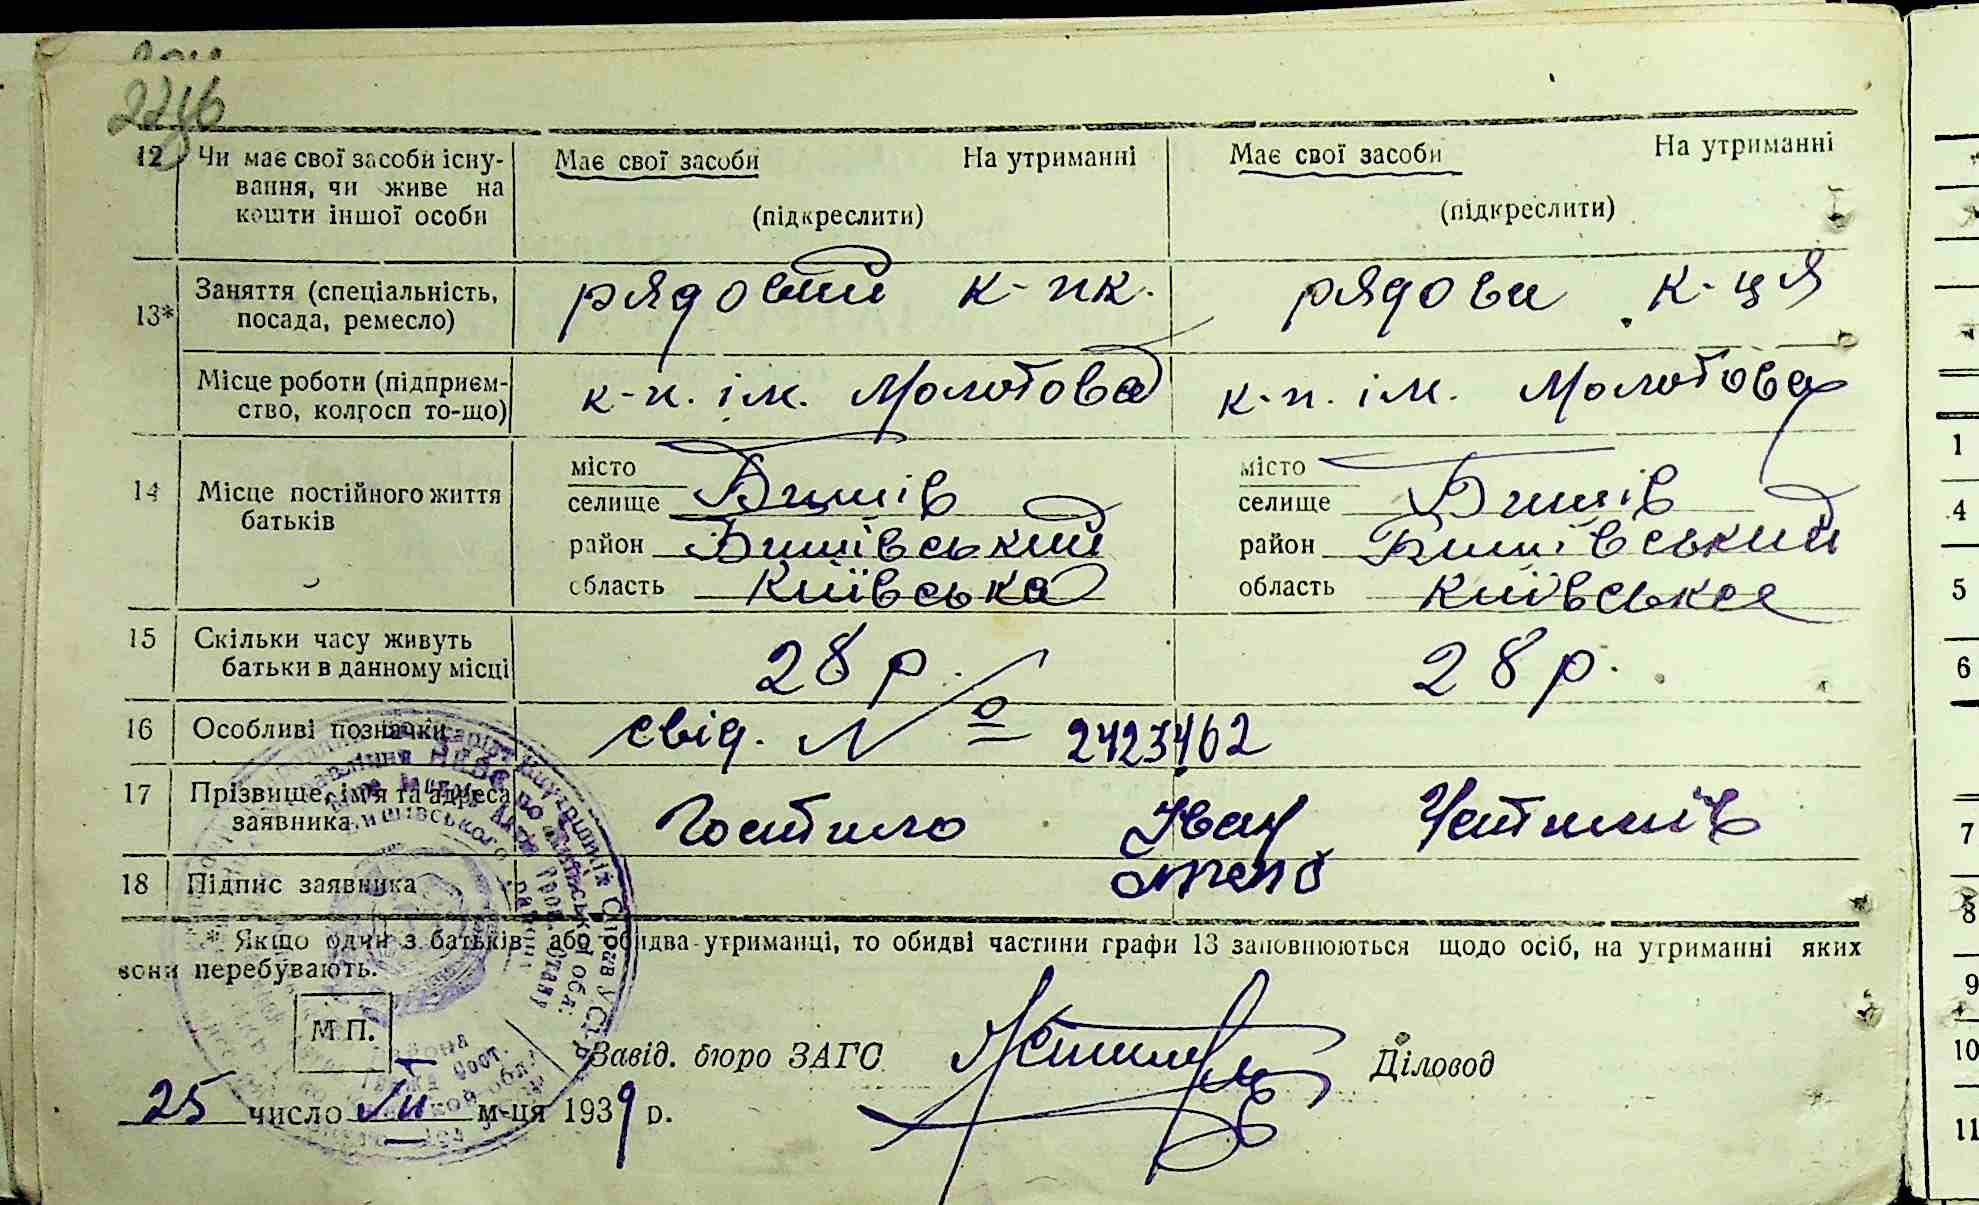 12 Чи має свої засоби існу-
вання, чи живе на
кошти іншої особи
Має свої засоби На утриманні
(підкреслити)
Має свої засоби На утриманні
(підкреслити)
13* Заняття (спеціальність,
посада, ремесло)
рядовий к-пк.
рядова к-ця
Місце роботи (підприєм-
ство, колгосп то-що)
к-п. ім. Молотова
к-п. ім. Молотова
14 Місце постійного життя
батьків
місто
селище Бишів
район Бишівський
область Київська
місто
селище Бишів
район Бишівський
область Київська
15 Скільки часу живуть
батьки в данному місці
28 р.
28 р.
16 Особливі позначки
свід. № 2423462
17 Прізвище, ім'я та адреса
заявника
Гостило Іван
18 Підпис заявника
* Якщо одчи з батьків або обидва утриманці, то обидві частини графи 13 заповнюються щодо осіб, на утриманні яких
вони перебувають.
М.П.
Завід. бюро ЗАГС Діловод
25 число VII м-ця 1939 р.
1
4
5
6
7
8
9
10
11